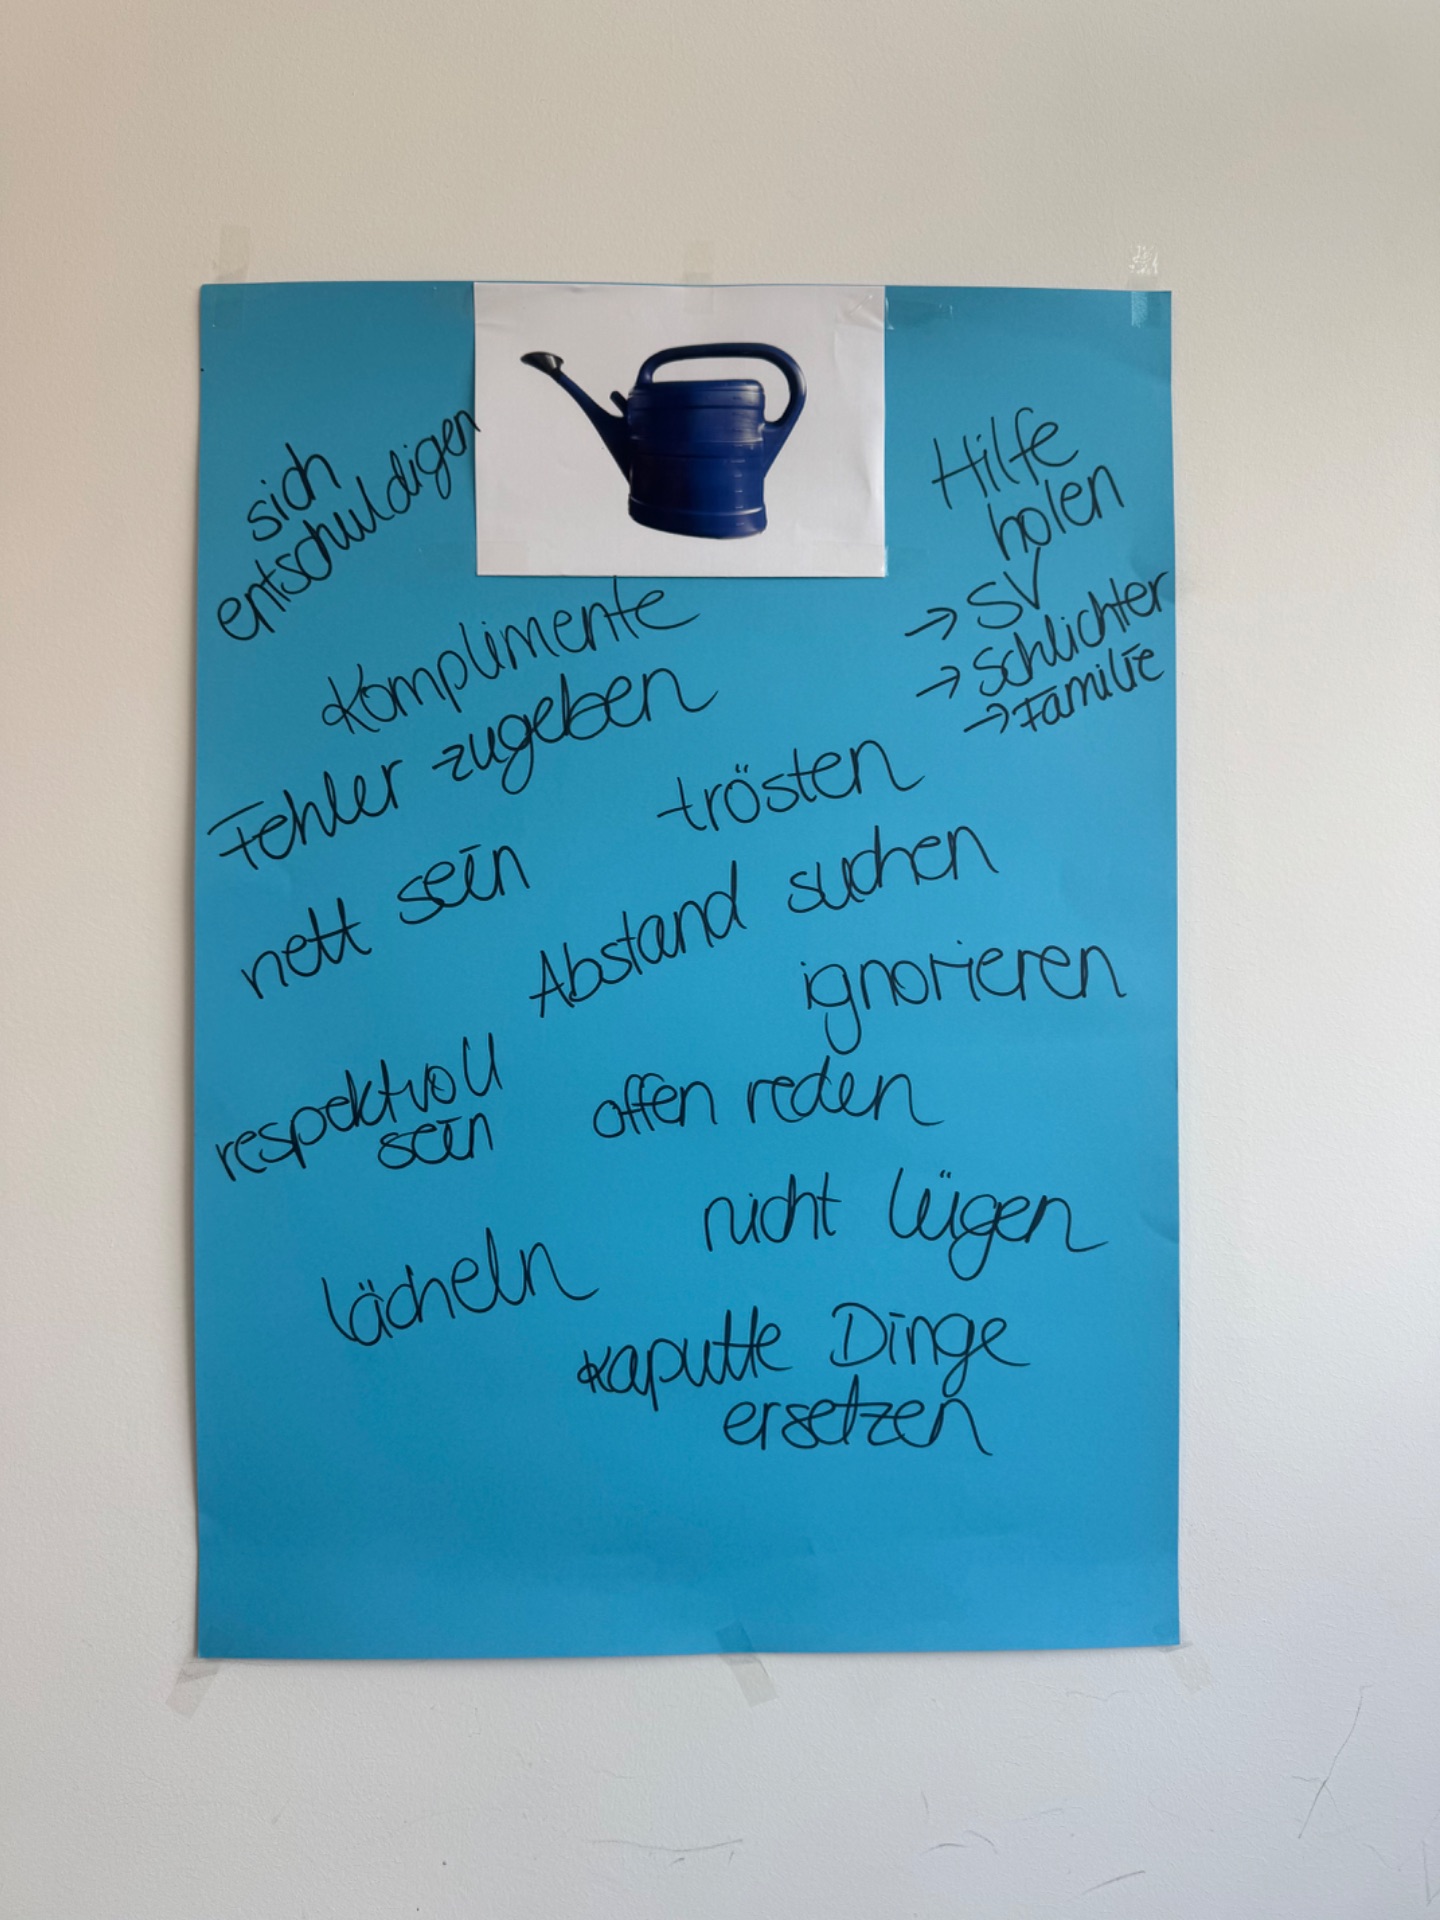 sich
entschuldigen
Hilfe
holen
→ SV
→ Schlichter
→ Familie
Komplimente
Fehler zugeben
trösten
nett sein
Abstand suchen
ignorieren
respektvoll
sein
offen reden
nicht lügen
lächeln
kaputte Dinge
ersetzen